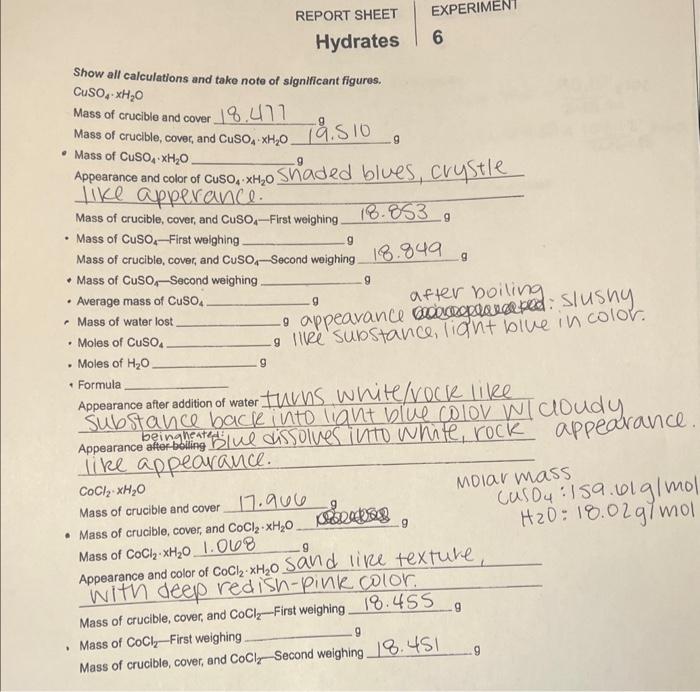 REPORT SHEET
EXPERIMENT
Hydrates
6
Show all calculations and take note of significant figures.
CuSO₄·xH₂O
Mass of crucible and cover 18.477 g
Mass of crucible, cover, and CuSO₄·xH₂O 19.510 g
• Mass of CuSO₄·xH₂O g
Appearance and color of CuSO₄·xH₂O shaded blues, crystle
like apperance.
Mass of crucible, cover, and CuSO₄—First weighing 18.853 g
• Mass of CuSO₄—First weighing g
Mass of crucible, cover, and CuSO₄—Second weighing 18.849 g
• Mass of CuSO₄—Second weighing g
• Average mass of CuSO₄ g
after boiling
• Mass of water lost g appearance : slushy
• Moles of CuSO₄ g like substance, light blue in color.
• Moles of H₂O g
• Formula
Appearance after addition of water turns white/rock like
substance back into light blue color w/ cloudy
appearance.
being heated:
Appearance after boiling blue dissolves into white, rock
like appearance.
CoCl₂·xH₂O
Molar mass
CuSO4:159.61g/mol
H2O: 18.02g/mol
Mass of crucible and cover 17.966 g
• Mass of crucible, cover, and CoCl₂·xH₂O g
Mass of CoCl₂·xH₂O 1.068 g
Appearance and color of CoCl₂·xH₂O sand like texture,
with deep redish-pink color.
Mass of crucible, cover, and CoCl₂—First weighing 18.455 g
• Mass of CoCl₂—First weighing g
Mass of crucible, cover, and CoCl₂—Second weighing 18.451 g